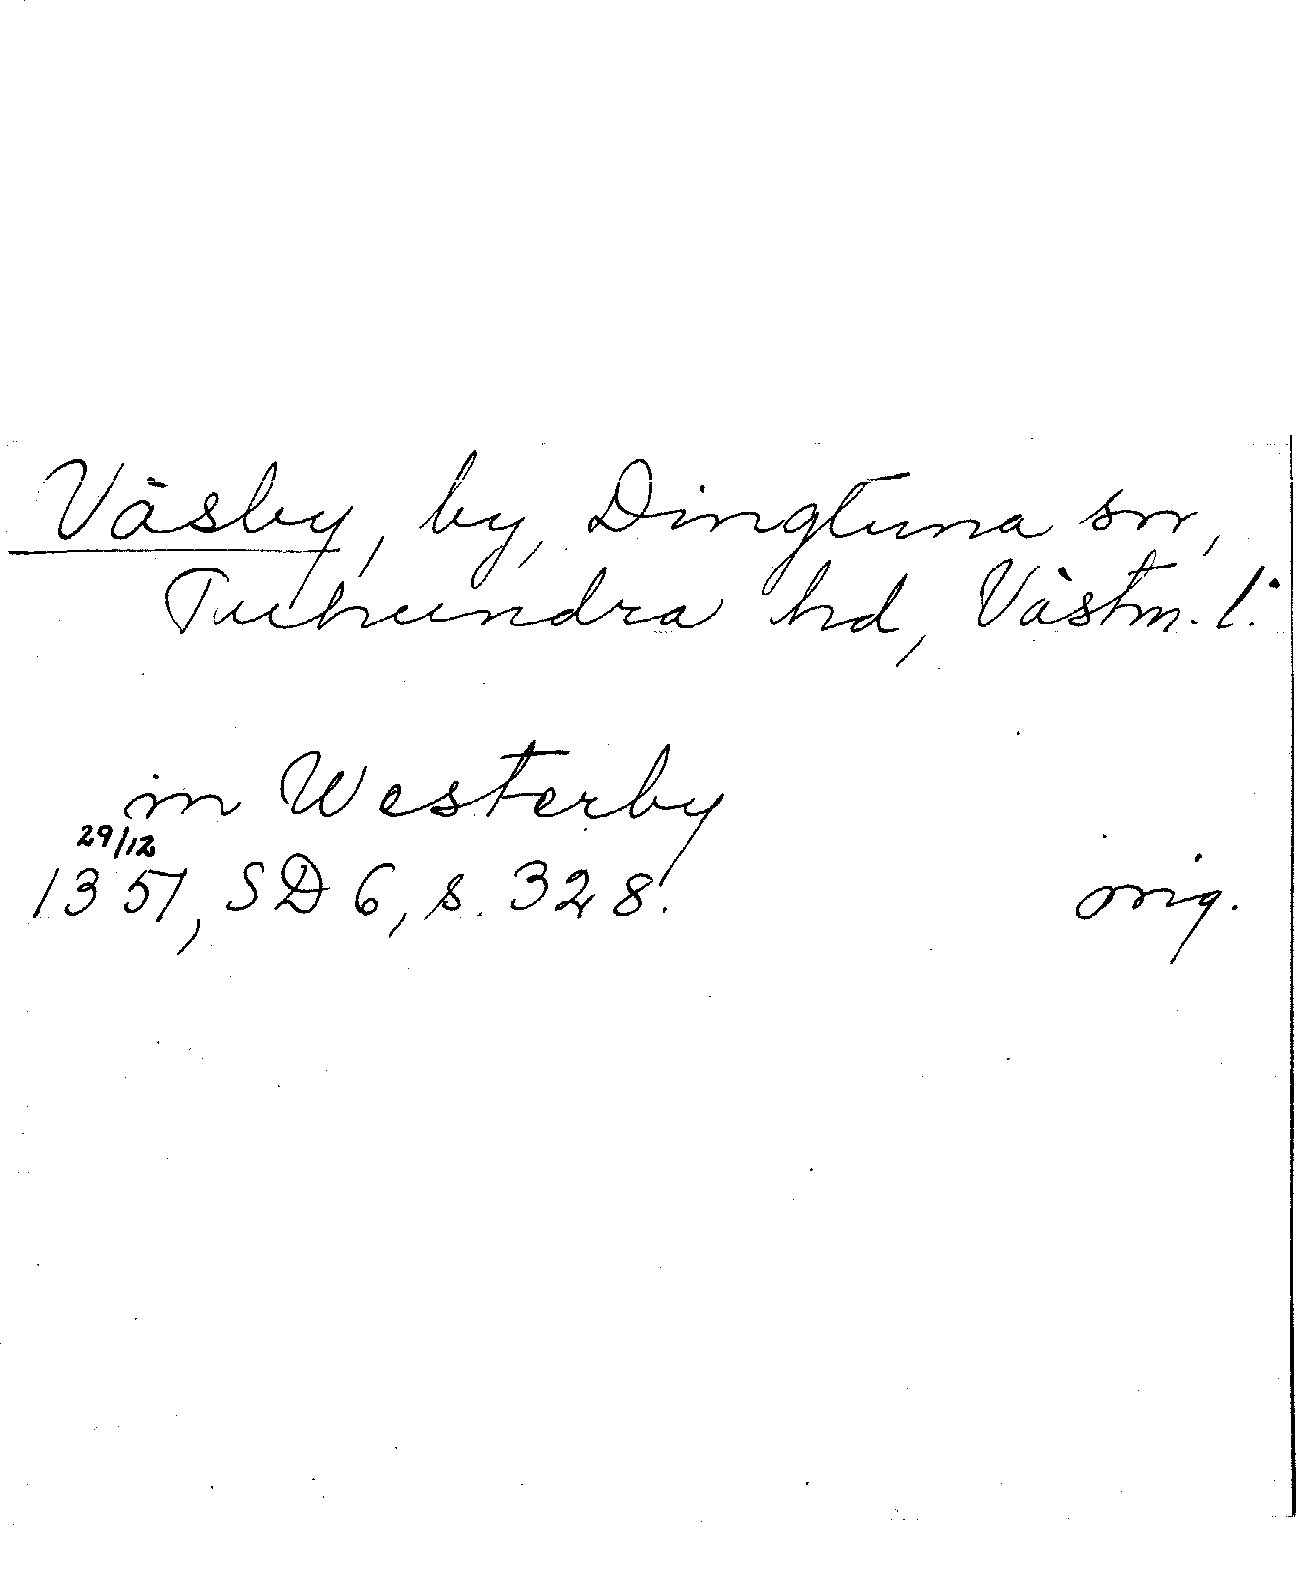 Väsby, by, Dingtuna sn,
Tuhundra hd, Västm. l.
in Westerby
29/12
1357, SD 6, s. 328.
orig.